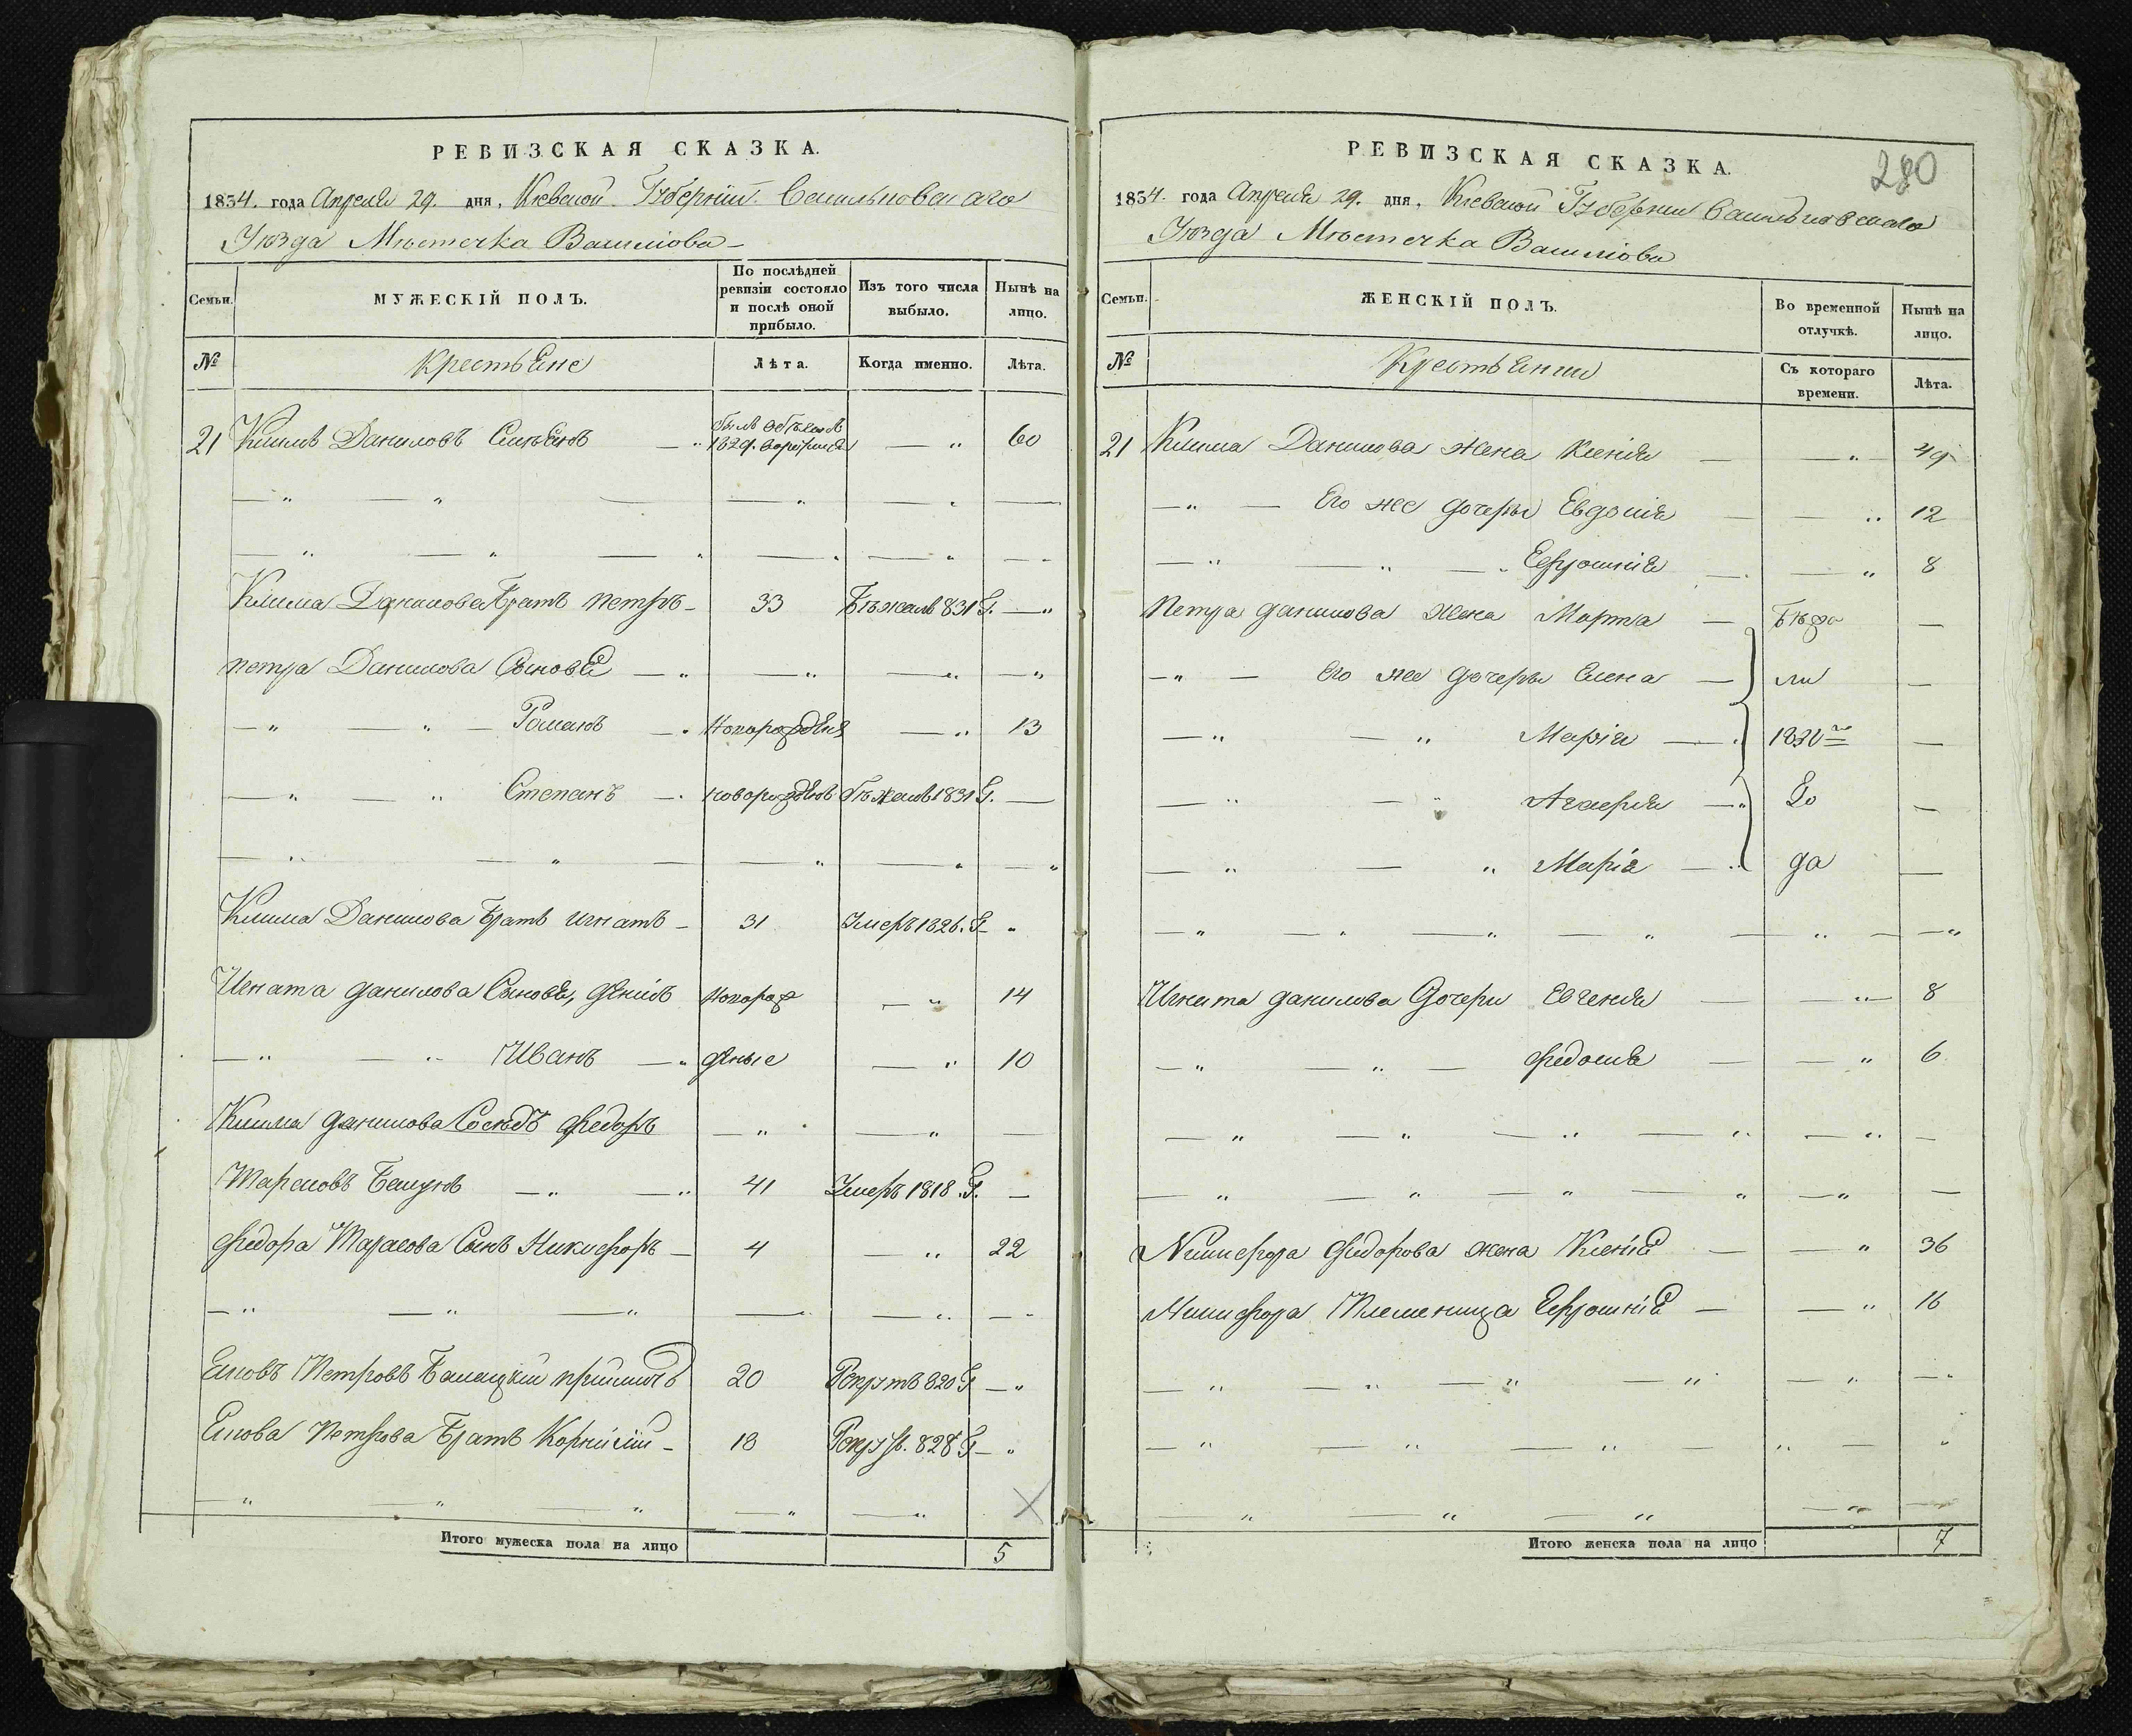 РЕВИЗСКАЯ СКАЗКА.
1834. года Апреля 29. дня, Киевской Губернии Васильковскаго
Уѣзда Мѣстечка
Семьи.
МУЖЕСКІЙ ПОЛЪ.
По послѣдней ревизіи состояло и послѣ оной прибыло.
Изъ того числа выбыло.
Нынѣ на лицо.
№
Крестьяне
Лѣта.
Когда именно.
Лѣта.
21 Климъ Даниловъ — " 60
Клима Данилова Братъ Петръ — 33 Бѣжалъ 831 Г. — "
Петра Данилова Сыновья — "
— " — " — Романъ — " 13
— " — " Степанъ — " новорожденъ бѣжалъ 1831 Г. —
Клима Данилова Братъ Игнатъ — 31 Умеръ 1826. Г — "
Игната данилова Сыновья, новорож — " 14
— " — " Иванъ — " деные — " 10
Клима данилова Сосѣдъ Федоръ — " — " —
Тарасовъ — " — " 41 Умеръ 1818. Г. —
Федора Тарасова Сынъ Никифоръ — 4 — " 22
Яковъ Петровъ 20 Рекрутъ 820 Г — "
Якова Петрова Братъ Корнилій — 18 828 Г — "
Итого мужеска пола на лицо 5
280
РЕВИЗСКАЯ СКАЗКА.
1834. года Апреля 29. дня, Киевской Губернии Васильковскаго
Уѣзда Мѣстечка
Семьи.
ЖЕНСКІЙ ПОЛЪ.
Во временной отлучкѣ.
Нынѣ на лицо.
№
Крестьянки
Съ котораго времени.
Лѣта.
21 Клима Данилова жена Ксенія — — " 49
— " — Его же дочеры Евдокія — — " 12
— " — " — " Ефросинія — — " 8
Петра данилова жена Марта — Бѣжа —
— " — Его же дочеры Елена — ли —
— " — " Марія — " —
— " — " — " Го —
— " — " Марія — " да —
Игната данилова Дочери Евгенія — — " 8
— " — " — Федосія — — " 6
Никифора Федорова жена Ксенія — — " 36
Никифора Племеница Ефросинія — — " 16
Итого женска пола на лицо 7